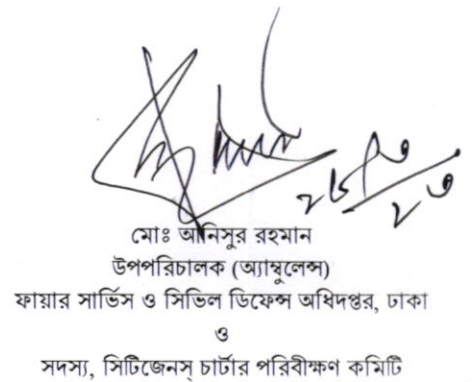 মোঃ আনিসুর রহমান
উপপরিচালক (অ্যাম্বুলেন্স)
ফায়ার সার্ভিস ও সিভিল ডিফেন্স অধিদপ্তর, ঢাকা
ও
সদস্য, সিটিজেনস্ চার্টার পরিবীক্ষণ কমিটি